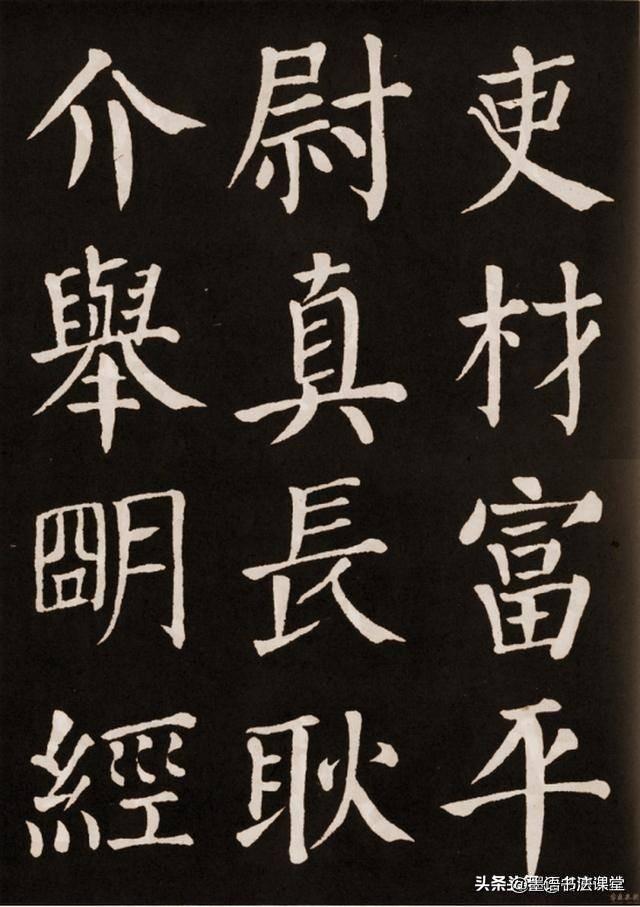 吏材富平
尉真長耿
介舉朙經
头条@墨语书法课堂